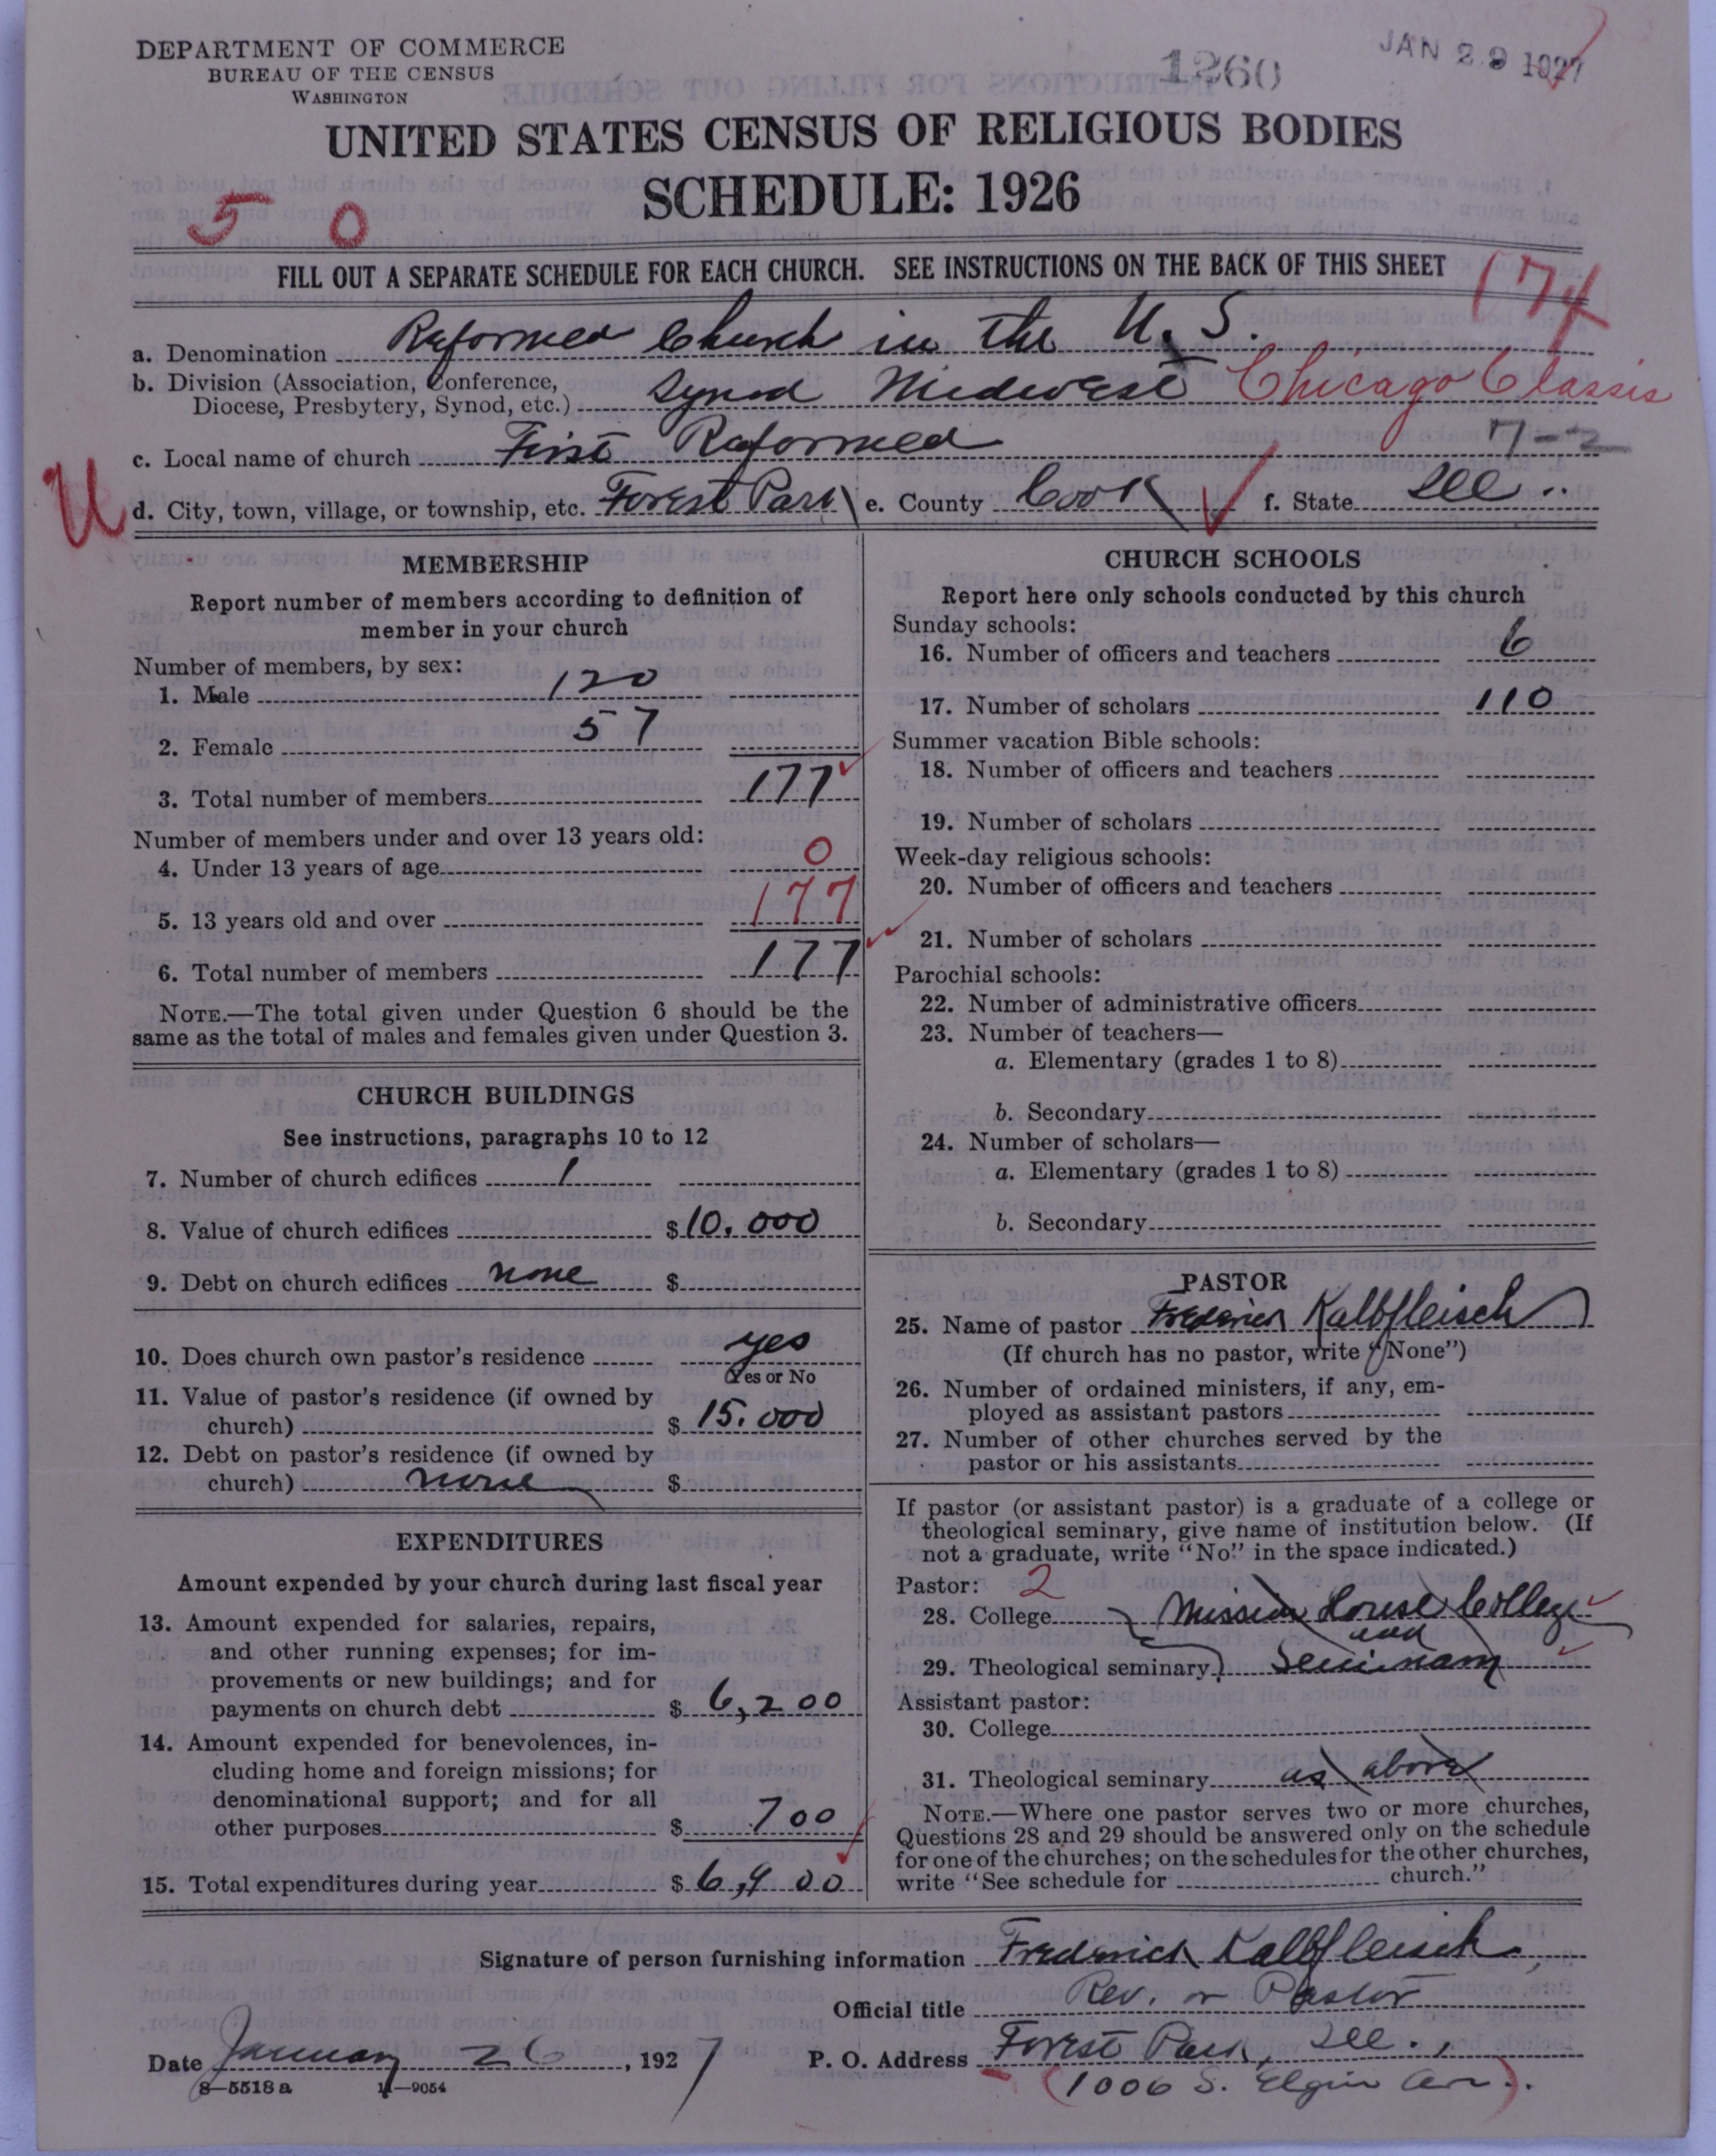 DEPARTMENT OF COMMERCE
BUREAU OF THE CENSUS
WASHINGTON
1260
JAN 29 1927
UNITED STATES CENSUS OF RELIGIOUS BODIES
SCHEDULE: 1926
5 0
FILL OUT A SEPARATE SCHEDULE FOR EACH CHURCH. SEE INSTRUCTIONS ON THE BACK OF THIS SHEET
174
a. Denomination Reformed Church in the U. S.
b. Division (Association, Conference,
Diocese, Presbytery, Synod, etc.) Synod Midwest Chicago Classis
c. Local name of church First Reformed 17-2
U
d. City, town, village, or township, etc. Forest Park e. County Cook f. State Ill.
MEMBERSHIP
Report number of members according to definition of
member in your church
Number of members, by sex:
1. Male 120
2. Female 57
3. Total number of members 177
Number of members under and over 13 years old:
4. Under 13 years of age 0
5. 13 years old and over 177
6. Total number of members 177
NOTE.—The total given under Question 6 should be the
same as the total of males and females given under Question 3.
CHURCH BUILDINGS
See instructions, paragraphs 10 to 12
7. Number of church edifices 1
8. Value of church edifices $10.000
9. Debt on church edifices none $
10. Does church own pastor's residence yes
Yes or No
11. Value of pastor's residence (if owned by
church) $ 15.000
12. Debt on pastor's residence (if owned by
church) none $
EXPENDITURES
Amount expended by your church during last fiscal year
13. Amount expended for salaries, repairs,
and other running expenses; for im-
provements or new buildings; and for
payments on church debt $ 6,200
14. Amount expended for benevolences, in-
cluding home and foreign missions; for
denominational support; and for all
other purposes $ 700
15. Total expenditures during year $ 6,900
CHURCH SCHOOLS
Report here only schools conducted by this church
Sunday schools:
16. Number of officers and teachers 6
17. Number of scholars 110
Summer vacation Bible schools:
18. Number of officers and teachers
19. Number of scholars
Week-day religious schools:
20. Number of officers and teachers
21. Number of scholars
Parochial schools:
22. Number of administrative officers
23. Number of teachers—
a. Elementary (grades 1 to 8)
b. Secondary
24. Number of scholars—
a. Elementary (grades 1 to 8)
b. Secondary
PASTOR
25. Name of pastor Frederick Kalbfleisch
(If church has no pastor, write "None")
26. Number of ordained ministers, if any, em-
ployed as assistant pastors
27. Number of other churches served by the
pastor or his assistants
If pastor (or assistant pastor) is a graduate of a college or
theological seminary, give name of institution below. (If
not a graduate, write "No" in the space indicated.)
Pastor: 2
28. College Mission House College
and
29. Theological seminary Seminary
Assistant pastor:
30. College
31. Theological seminary as above
NOTE.—Where one pastor serves two or more churches,
Questions 28 and 29 should be answered only on the schedule
for one of the churches; on the schedules for the other churches,
write "See schedule for church."
Signature of person furnishing information Frederick Kalbfleisch
Official title Rev. or Pastor
Date January 26, 1927 P. O. Address Forest Park, Ill.,
8—5518a 11—9054 (1006 S. Elgin Av.).